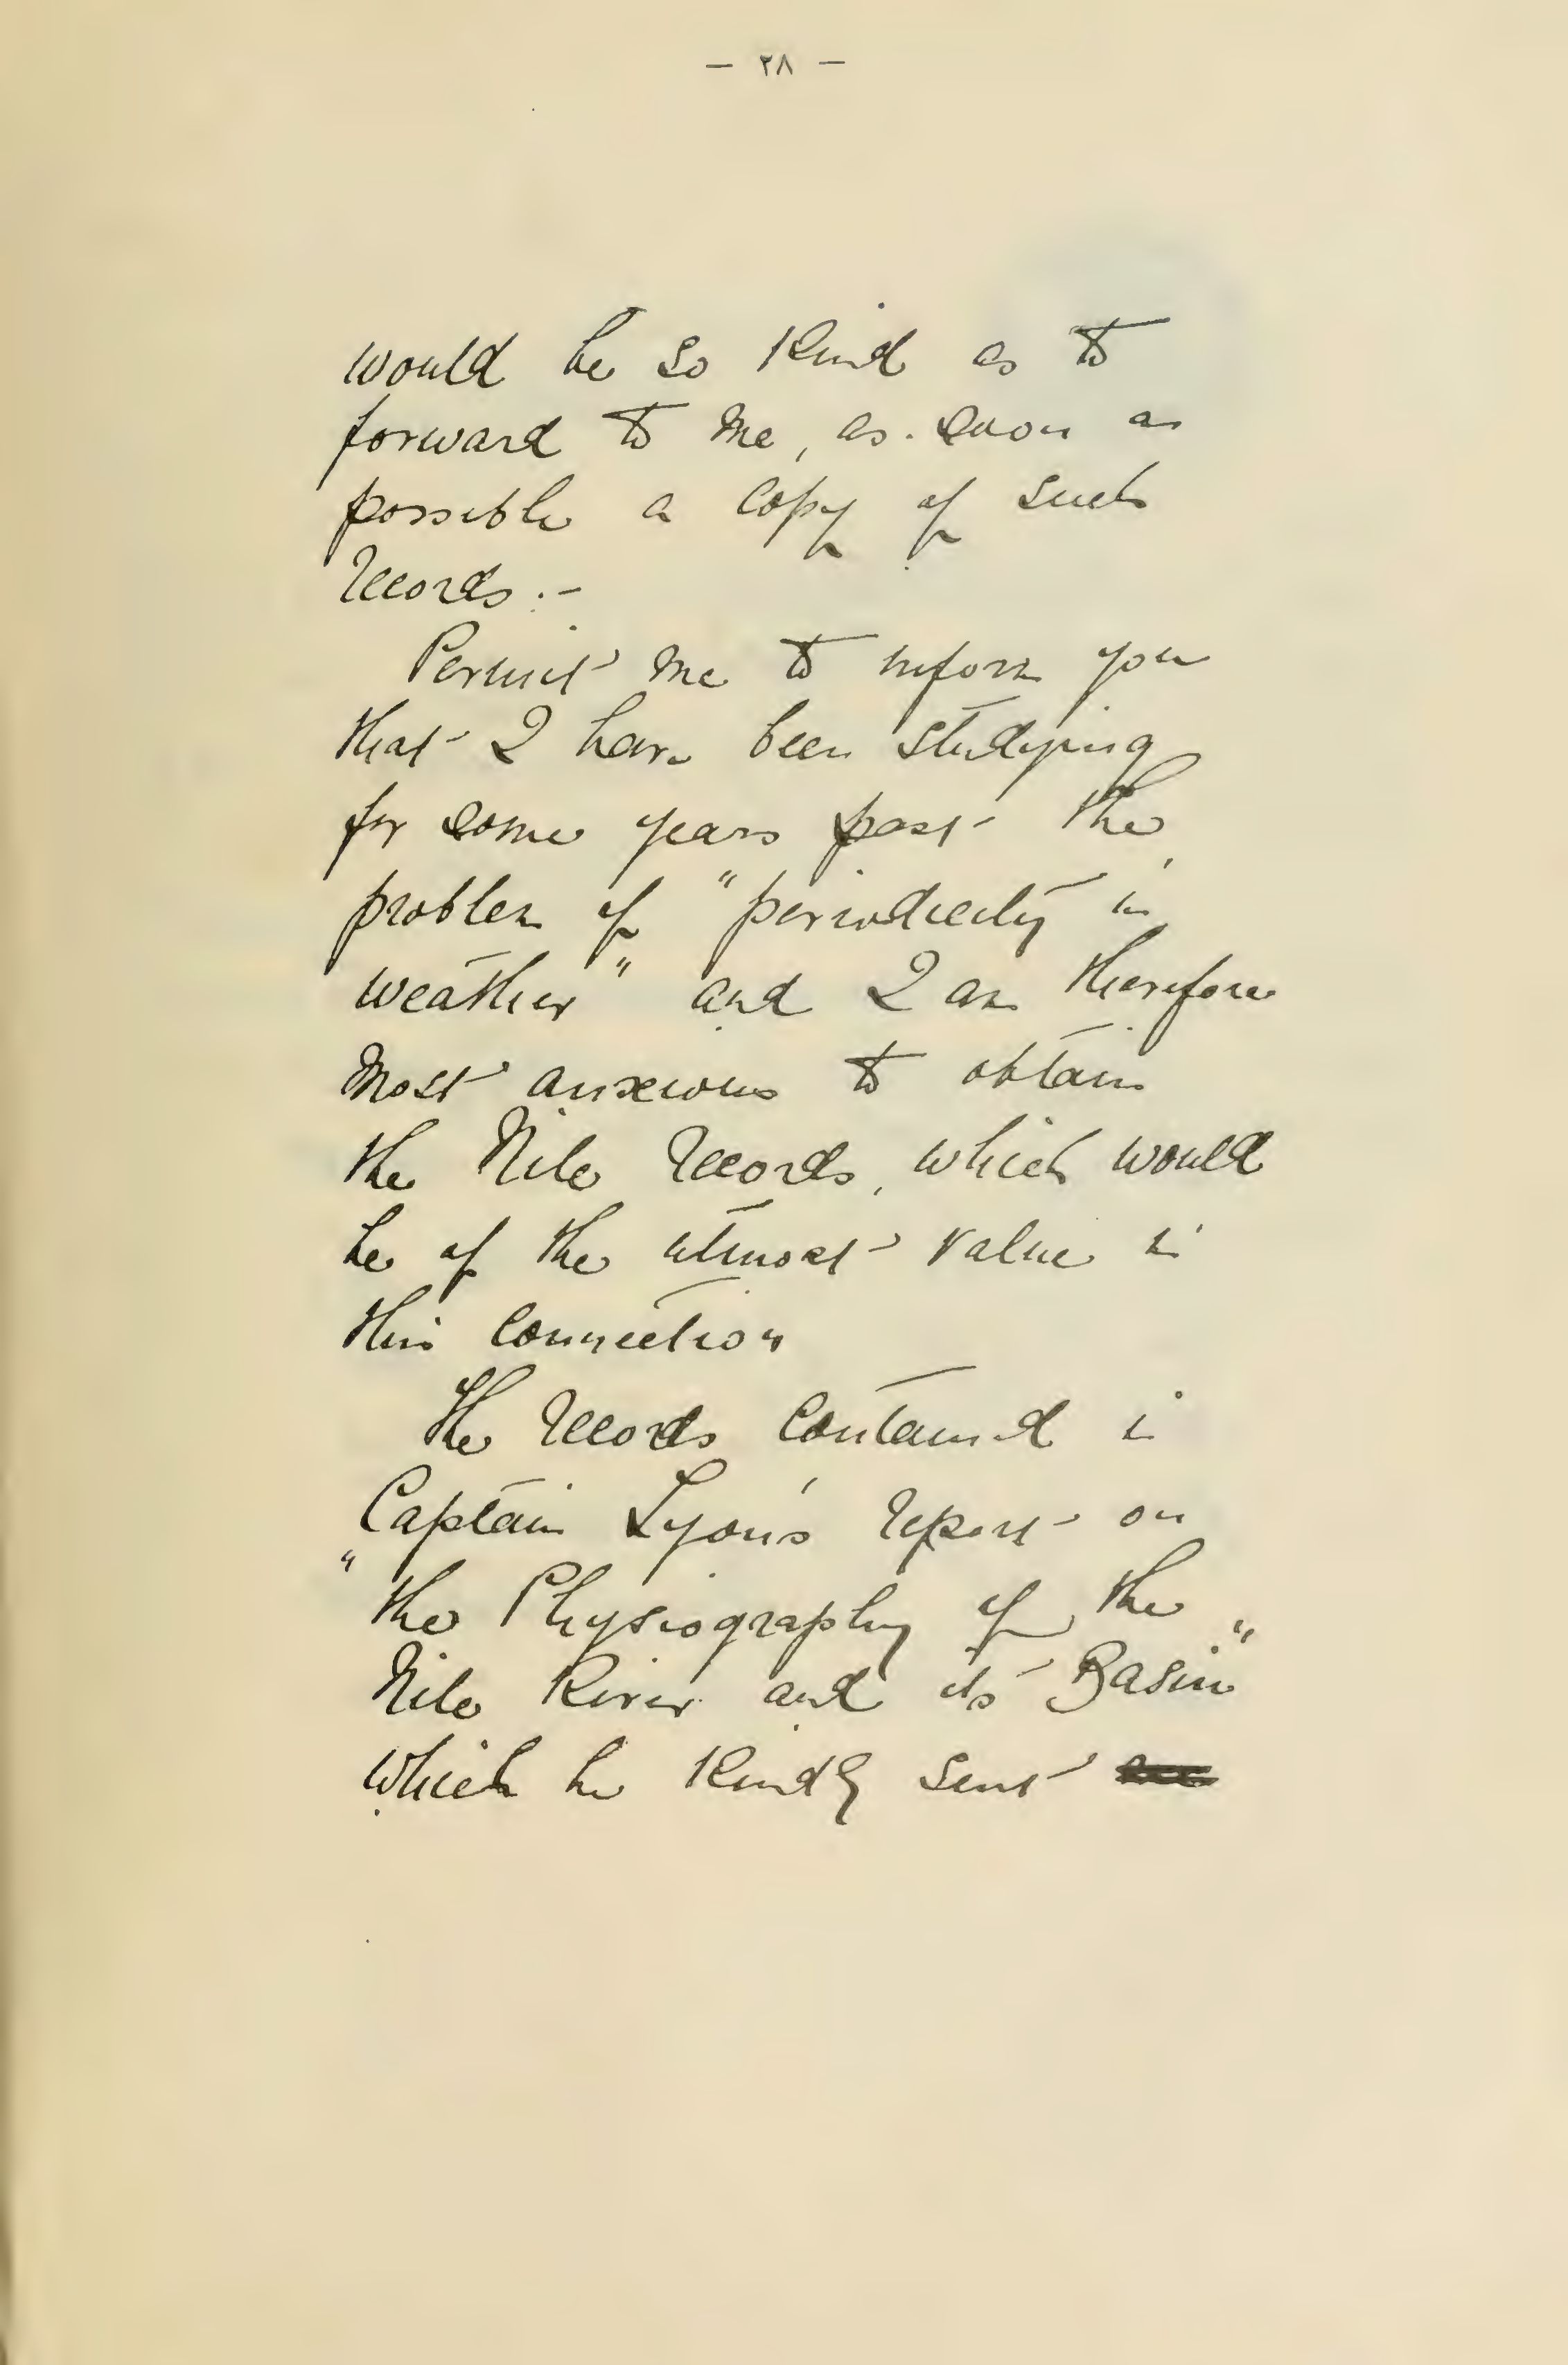 — ٢٨ —
would be so kind as to
forward to me, as soon as
possible a copy of such
records.-
Permit me to inform you
that I have been studying
for some years past the
problem of "periodicity in
weather" and I am therefore
most anxious to obtain
the Nile records, which would
be of the utmost value in
this connection
The records contained in
Captain Lyon's report on
"the Physiography of the
Nile River and its Basin"
which he kindly sent